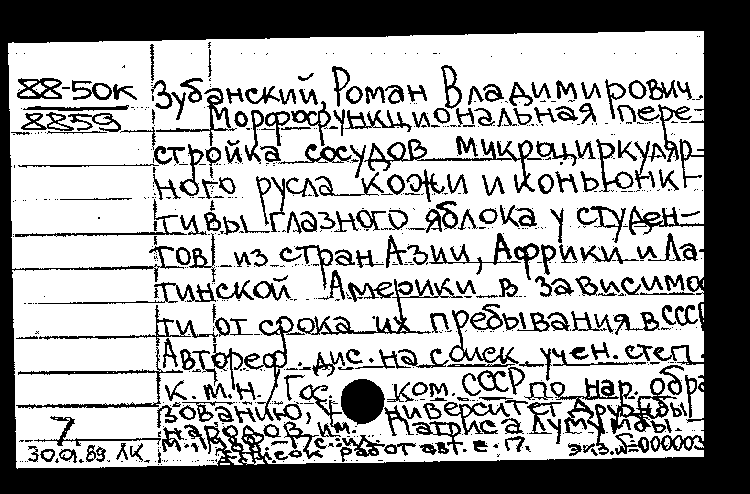 88-50к
8859
Зубанский, Роман Владимирович.
Морфофункциональная пере-
стройка сосудов микроциркуляр-
ного русла кожи и конъюнк-
тивы глазного яблока у студен-
тов из стран Азии, Африки и Ла-
тинской Америки в зависимо
ти от срока их пребывания в СССР
Автореф. дис. на соиск. учен. степ.
к.м.н. / Гос ком. СССР по нар. обра
зованию, Университет Дружбы
народов им. Патриса Лумумбы.
работ авт. с. 17.
7.
30.01.89 ЛК. экз. N=000003